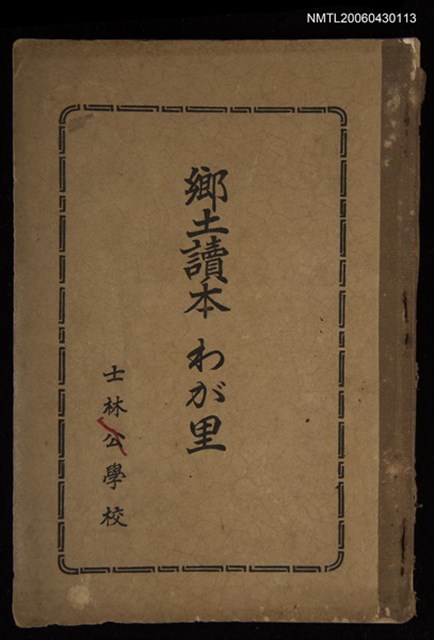 NMTL20060430113
鄉土讀本 わが里
士林公學校